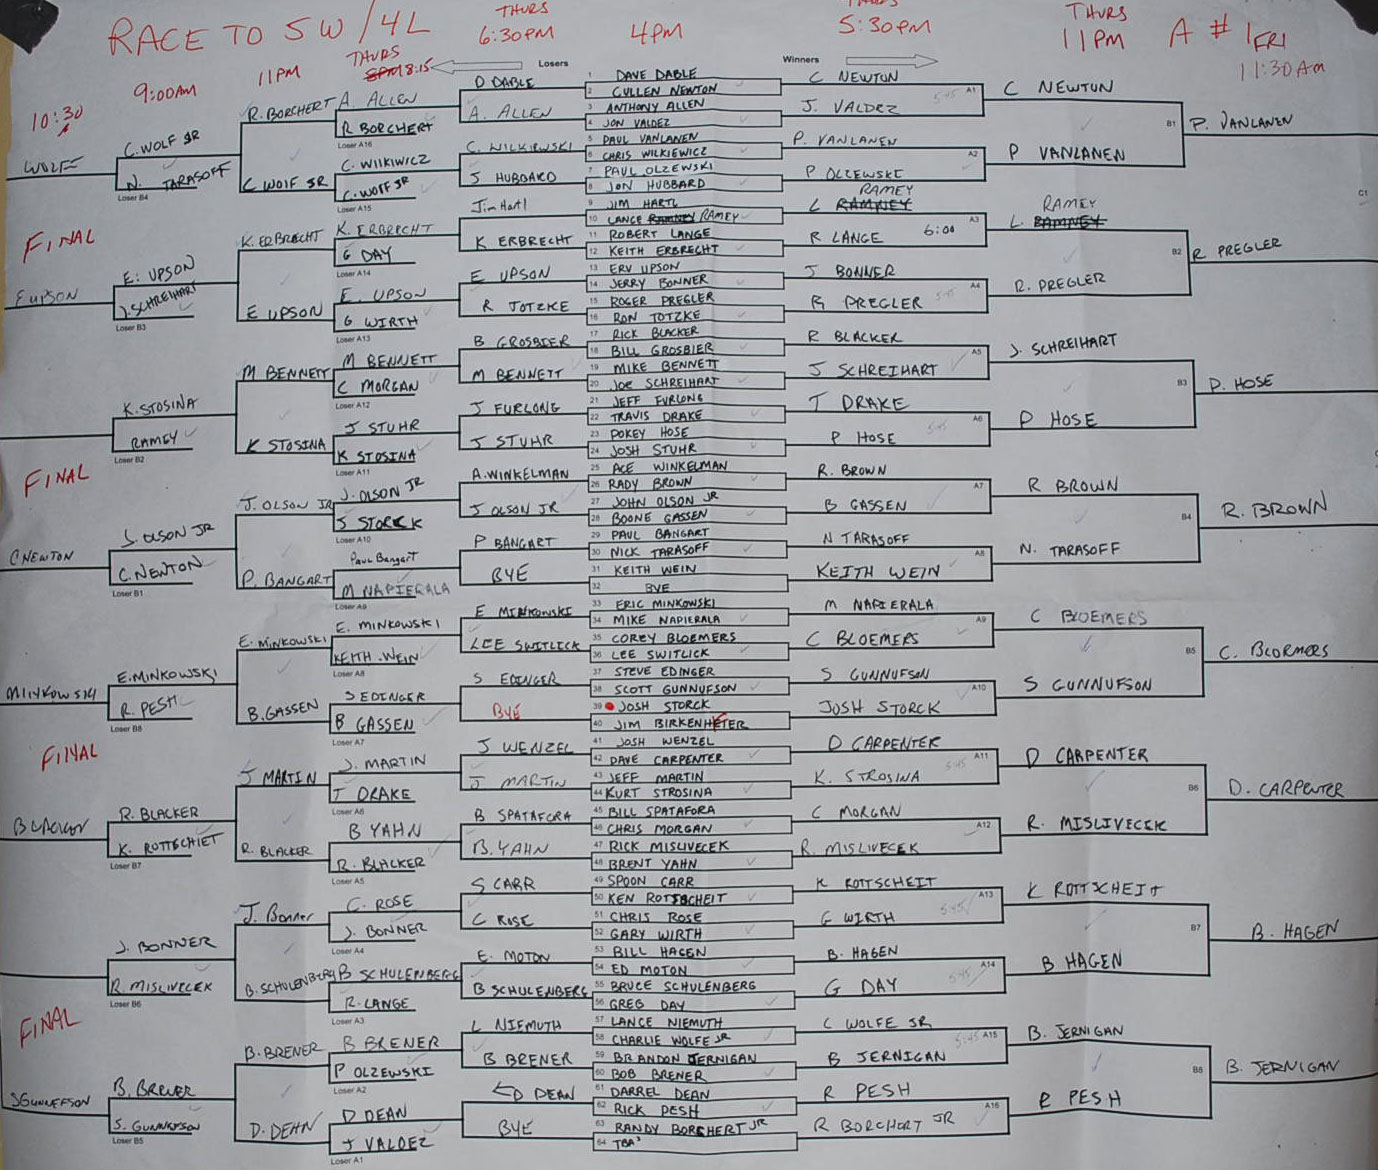 RACE TO 5W/4L
THURS
6:30PM
4PM
THURS
5:30PM
THURS
11PM
A #1
FRI
11:30AM
10:30
9:00AM
11PM
THURS
8:15
Losers
Winners
WOLFE
FINAL
E UPSON
FINAL
C NEWTON
MINKOWSKI
FINAL
BLACKER
FINAL
S GUNNEFSON
C. WOLF JR
N. TARASOFF
Loser B4
E. UPSON
J. SCHREIHART
Loser B3
K. STOSINA
RAMEY
Loser B2
J. OLSON JR
C. NEWTON
Loser B1
E. MINKOWSKI
R. PESH
Loser B8
R. BLACKER
K. ROTTSCHIET
Loser B7
J. BONNER
R. MISLIVECEK
Loser B6
B. BRENER
S. GUNNEFSON
Loser B5
R. BORCHERT
C WOLF JR
K. ERBRECHT
E UPSON
M BENNETT
K STOSINA
J. OLSON JR
P. BANGART
E. MINKOWSKI
B. GASSEN
J MARTIN
R. BLACKER
J. Bonner
B. SCHULENBERG
B. BRENER
D. DEAN
A. ALLEN
R BORCHERT
Loser A16
C. WILKIWICZ
C. WOLF JR
Loser A15
K. ERBRECHT
G DAY
Loser A14
E. UPSON
G WIRTH
Loser A13
M BENNETT
C MORGAN
Loser A12
J STUHR
K STOSINA
Loser A11
J. OLSON JR
J STORCK
Loser A10
Paul Bangart
M NAPIERALA
Loser A9
E. MINKOWSKI
KEITH WEIN
Loser A8
S EDINGER
B GASSEN
Loser A7
J. MARTIN
T DRAKE
Loser A6
B YAHN
R. BLACKER
Loser A5
C. ROSE
J. BONNER
Loser A4
B SCHULENBERG
R. LANGE
Loser A3
B BRENER
P OLZEWSKI
Loser A2
D DEAN
J VALDEZ
Loser A1
D DABLE
A. ALLEN
C. WILKIEWSKI
J HUBBARD
Jim Hartl
K ERBRECHT
E UPSON
R TOTZKE
B GROSBIER
M BENNETT
J FURLONG
J STUHR
A. WINKELMAN
J OLSON JR
P BANGART
BYE
E MINKOWSKI
LEE SWITLICK
S EDINGER
BYE
J WENZEL
J MARTIN
B SPATAFORA
B. YAHN
S CARR
C ROSE
E. MOTON
B SCHULENBERG
L NIEMUTH
B BRENER
D DEAN
BYE
1 DAVE DABLE
2 CULLEN NEWTON
3 ANTHONY ALLEN
4 JON VALDEZ
5 PAUL VANLANEN
6 CHRIS WILKIEWICZ
7 PAUL OLZEWSKI
8 JON HUBBARD
9 JIM HARTL
10 LANCE RAMNEY RAMEY
11 ROBERT LANGE
12 KEITH ERBRECHT
13 ERV UPSON
14 JERRY BONNER
15 ROGER PREGLER
16 RON TOTZKE
17 RICK BLACKER
18 BILL GROSBIER
19 MIKE BENNETT
20 JOE SCHREIHART
21 JEFF FURLONG
22 TRAVIS DRAKE
23 POKEY HOSE
24 JOSH STUHR
25 ACE WINKELMAN
26 RADY BROWN
27 JOHN OLSON JR
28 BOONE GASSEN
29 PAUL BANGART
30 NICK TARASOFF
31 KEITH WEIN
32 BYE
33 ERIC MINKOWSKI
34 MIKE NAPIERALA
35 COREY BLOEMERS
36 LEE SWITLICK
37 STEVE EDINGER
38 SCOTT GUNNUFSON
39 JOSH STORCK
40 JIM BIRKENHETER
41 JOSH WENZEL
42 DAVE CARPENTER
43 JEFF MARTIN
44 KURT STROSINA
45 BILL SPATAFORA
46 CHRIS MORGAN
47 RICK MISLIVECEK
48 BRENT YAHN
49 SPOON CARR
50 KEN ROTTSCHEIT
51 CHRIS ROSE
52 GARY WIRTH
53 BILL HAGEN
54 ED MOTON
55 BRUCE SCHULENBERG
56 GREG DAY
57 LANCE NIEMUTH
58 CHARLIE WOLFE JR
59 BRANDON JERNIGAN
60 BOB BRENER
61 DARREL DEAN
62 RICK PESH
63 RANDY BORCHERT JR
64 TBA
C NEWTON
J. VALDEZ
A1
P. VANLANEN
P OLZEWSKI
A2
RAMEY
L RAMNEY
R LANGE 6:00
A3
J BONNER
R PREGLER
A4
R BLACKER
J SCHREIHART
A5
T DRAKE
P HOSE
A6
R. BROWN
B GASSEN
A7
N TARASOFF
KEITH WEIN
A8
M NAPIERALA
C BLOEMERS
A9
S GUNNUFSON
JOSH STORCK
A10
D CARPENTER
K. STROSINA
A11
C MORGAN
R. MISLIVECEK
A12
K ROTTSCHEIT
G WIRTH
A13
B. HAGEN
G DAY
A14
C WOLFE JR
B JERNIGAN
A15
R PESH
R BORCHERT JR
A16
C NEWTON
P VANLANEN
B1
RAMEY
L. RAMNEY
R. PREGLER
B2
J. SCHREIHART
P HOSE
B3
R BROWN
N. TARASOFF
B4
C BLOEMERS
S GUNNUFSON
B5
D CARPENTER
R. MISLIVECEK
B6
K ROTTSCHEIT
B HAGEN
B7
B. JERNIGAN
R PESH
B8
P. VANLANEN
C1
R PREGLER
P. HOSE
R. BROWN
C. BLORMERS
D. CARPENTER
B. HAGEN
B. JERNIGAN